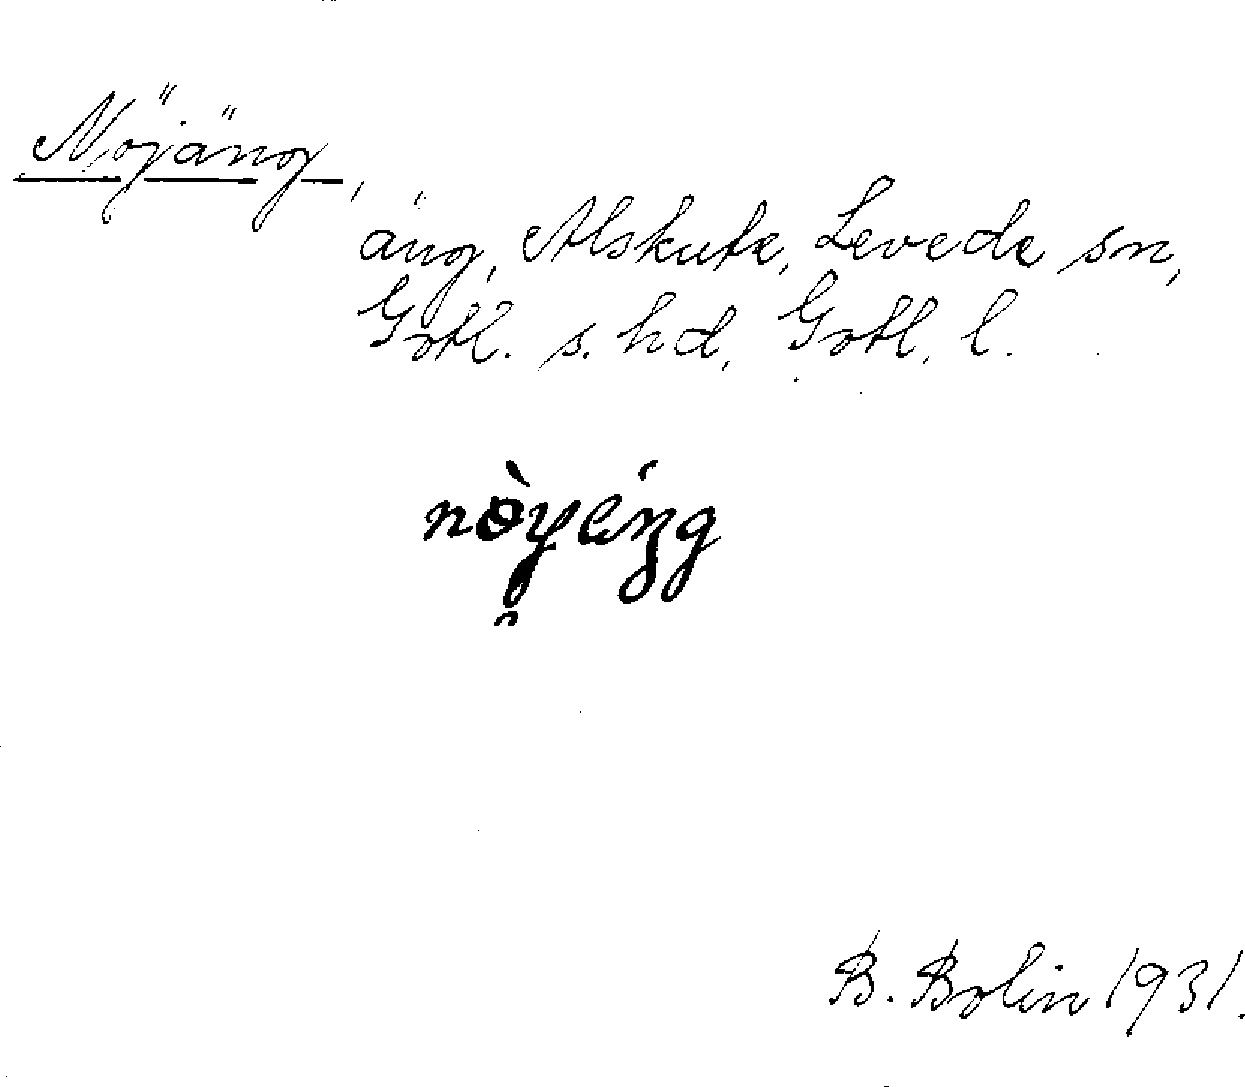 Nöjäng,
äng, Alskute, Levede sn,
Gotl. s. hd, Gotl. l.
B. Bolin 1931.